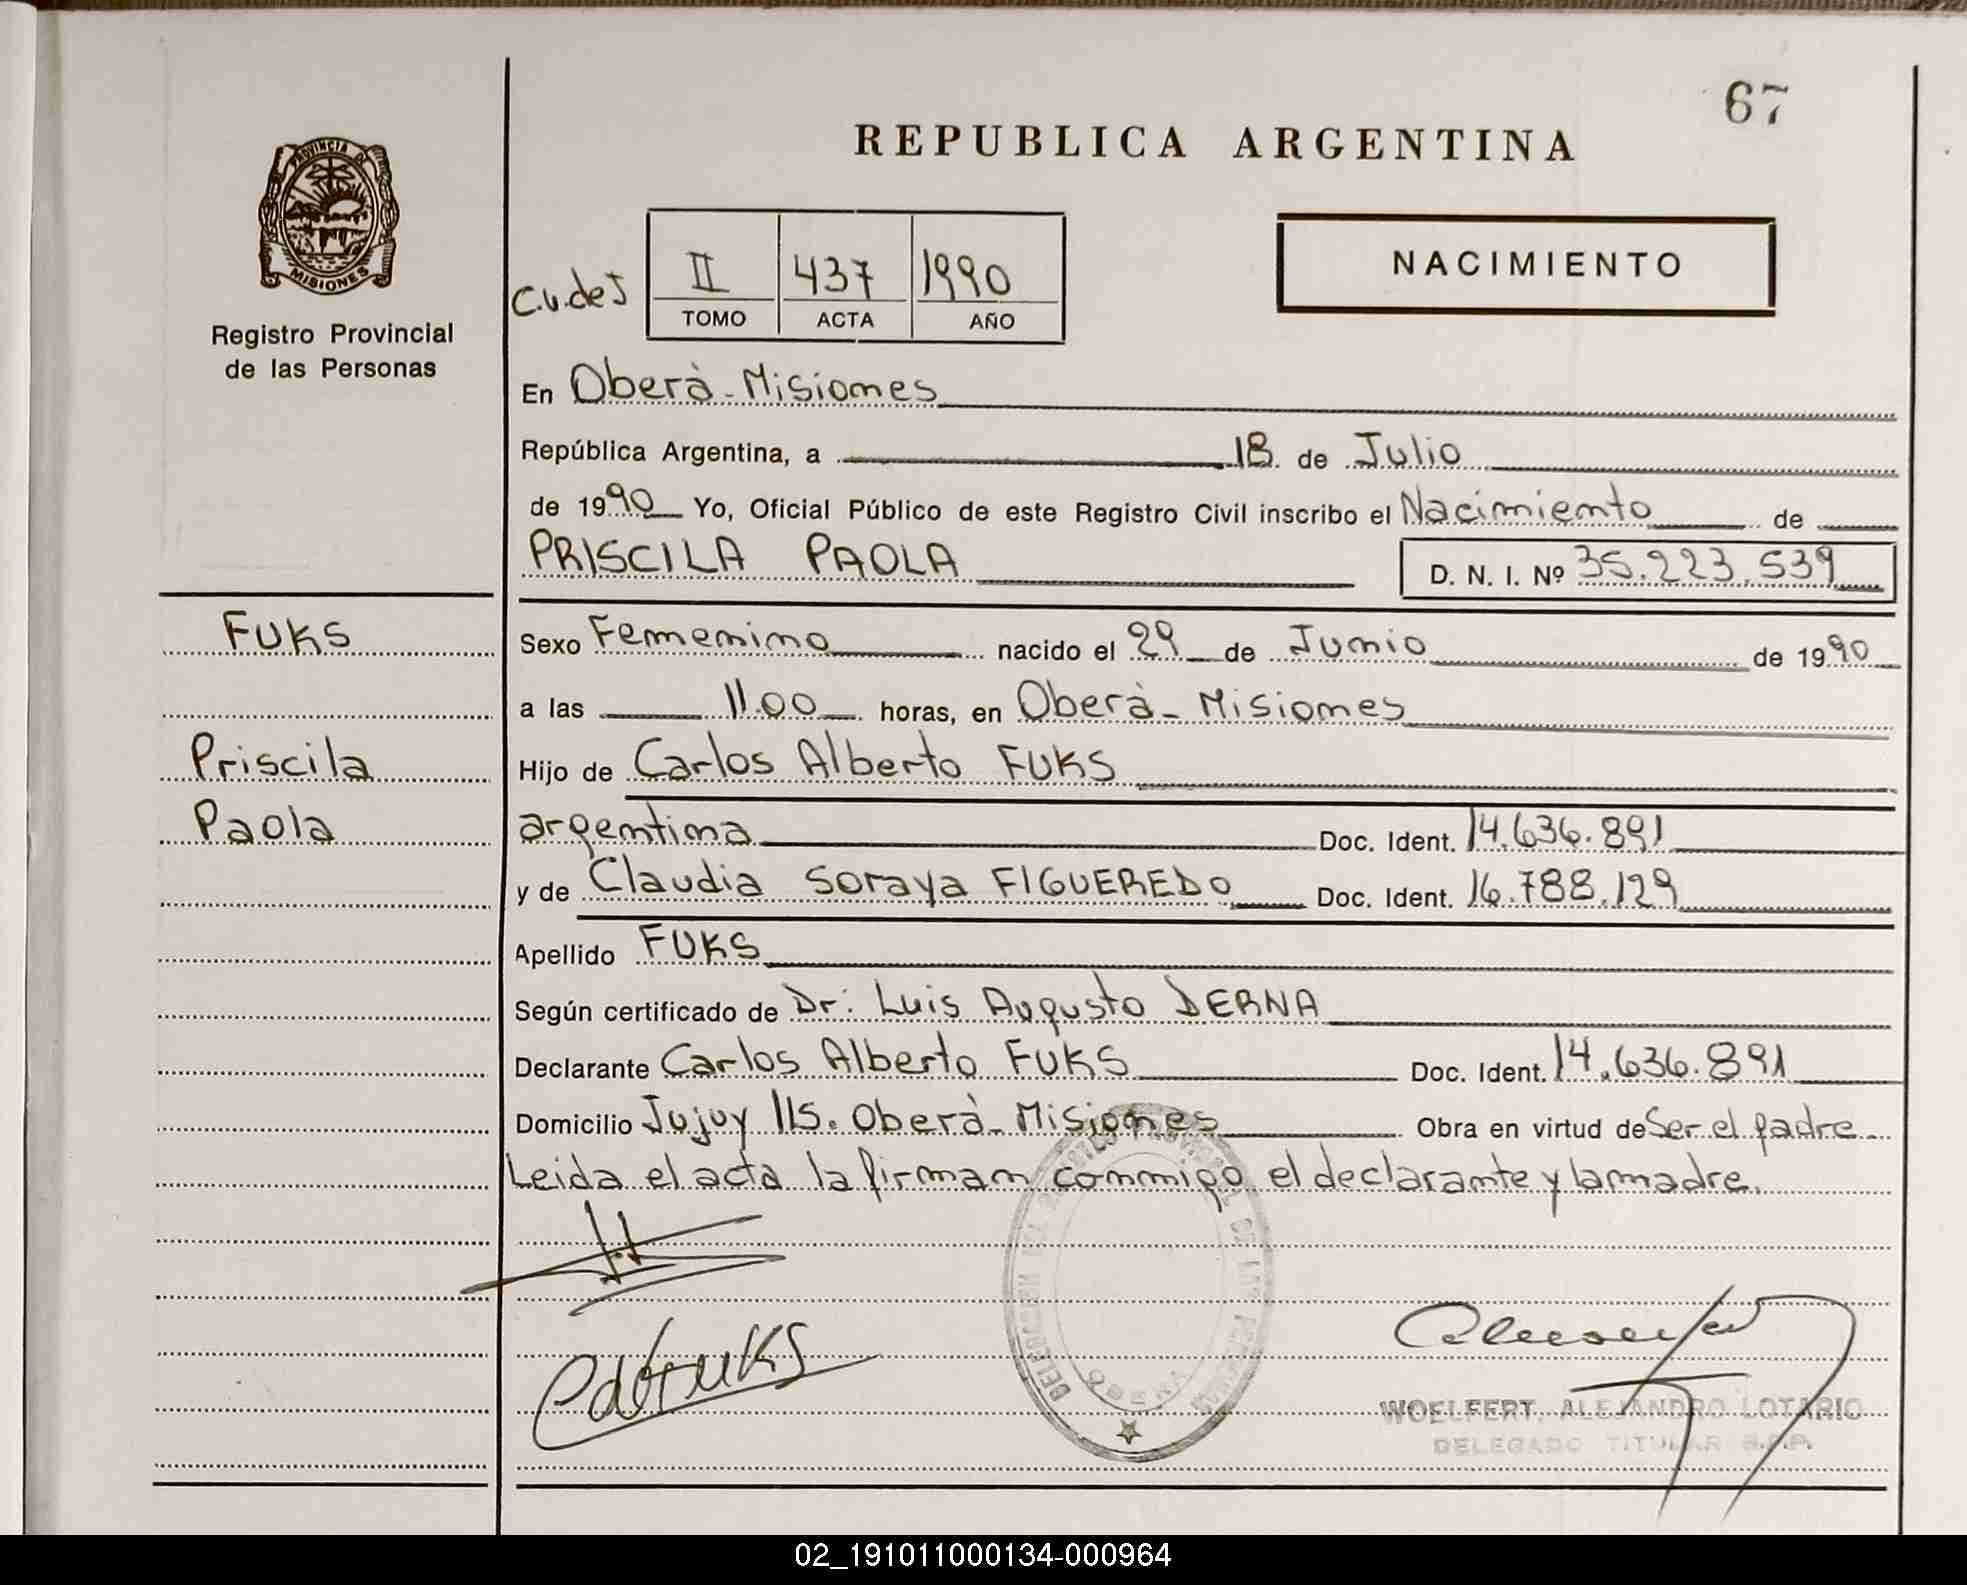 67
REPUBLICA ARGENTINA
PROVINCIA DE
MISIONES
Registro Provincial
de las Personas
NACIMIENTO
C.U. de J II 437 1990
TOMO ACTA AÑO
En Oberà - Misiones
República Argentina, a 18 de Julio
de 1990 Yo, Oficial Público de este Registro Civil inscribo el Nacimiento de
PRISCILA PAOLA D. N. I. Nº 35.223.539
FUKS
Sexo Femenino nacido el 29 de Junio de 1990
a las 11.00 horas, en Oberà - Misiones
Priscila
Hijo de Carlos Alberto FUKS
Paola
argentina Doc. Ident. 14.636.891
y de Claudia Soraya FIGUEREDO Doc. Ident. 16.788.129
Apellido FUKS
Según certificado de Dr: Luis Augusto DERNA
Declarante Carlos Alberto FUKS Doc. Ident. 14.636.891
Domicilio Jujuy 115. Oberà - Misiones Obra en virtud de Ser el padre
Leida el acta la firman conmigo el declarante y la madre.
OBERA
WOELFERT, ALEJANDRO LOTARIO
DELEGADO TITULAR R.P.P.
02_191011000134-000964